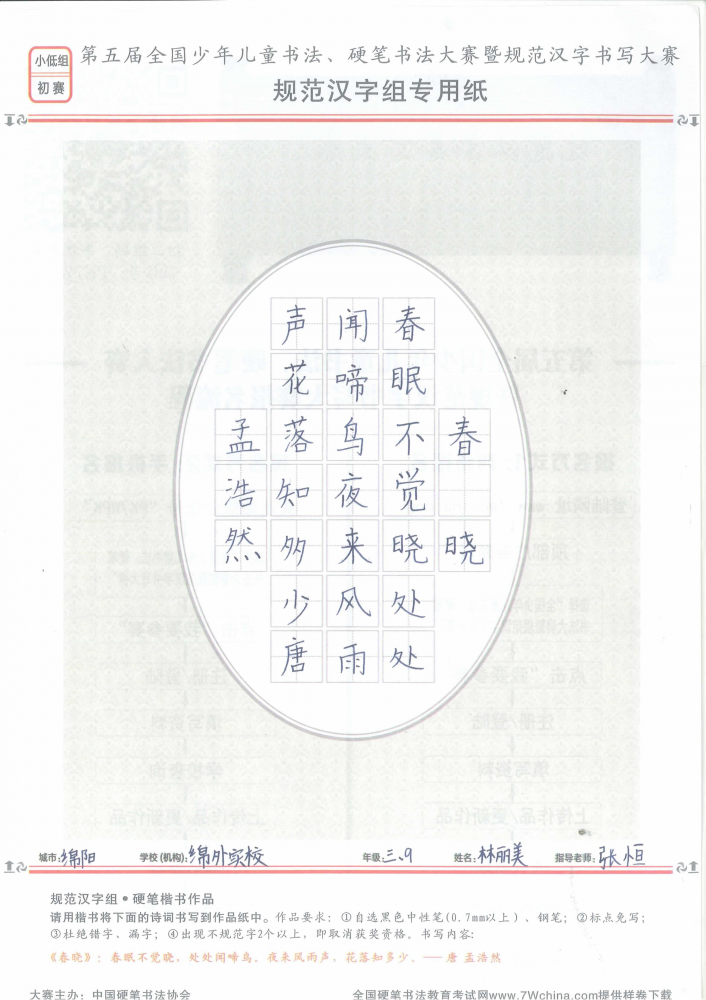 小低组
初赛
第五届全国少年儿童书法、硬笔书法大赛暨规范汉字书写大赛
规范汉字组专用纸
春晓
春眠不觉晓处处
闻啼鸟夜来风雨
声花落知多少唐
孟浩然
城市:绵阳 学校(机构):绵外实校 年级:三、9 姓名:林丽美 指导老师:张恒
规范汉字组•硬笔楷书作品
请用楷书将下面的诗词书写到作品纸中。作品要求：①自选黑色中性笔(0.7mm以上)、钢笔；②标点免写；
③杜绝错字、漏字；④出现不规范字2个以上，即取消获奖资格。书写内容:
《春晓》：春眠不觉晓，处处闻啼鸟。夜来风雨声，花落知多少。—— 唐 孟浩然
大赛主办：中国硬笔书法协会 全国硬笔书法教育考试网www.7Wchina.com提供样卷下载